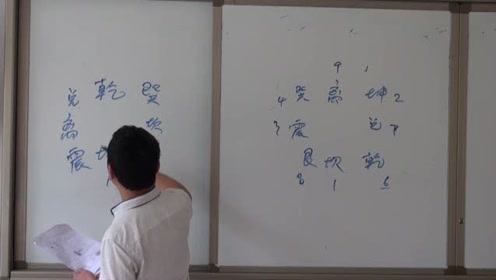 兑 乾 巽
离 坎
震
9
4 巽 离 坤 2
3 震 兑 7
艮 坎 乾
8 1 6